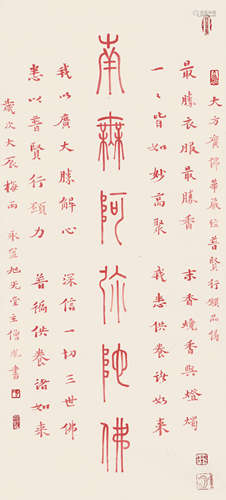 大方廣佛華嚴經普賢行願品偈
最勝衣服最勝香 末香燒香與燈燭
一一皆如妙高聚 我悉供養諸如來
南無阿弥陀佛
我以廣大勝解心 深信一切三世佛
悉以普賢行願力 普徧供養諸如來
歲次 辰梅雨 主僧 書